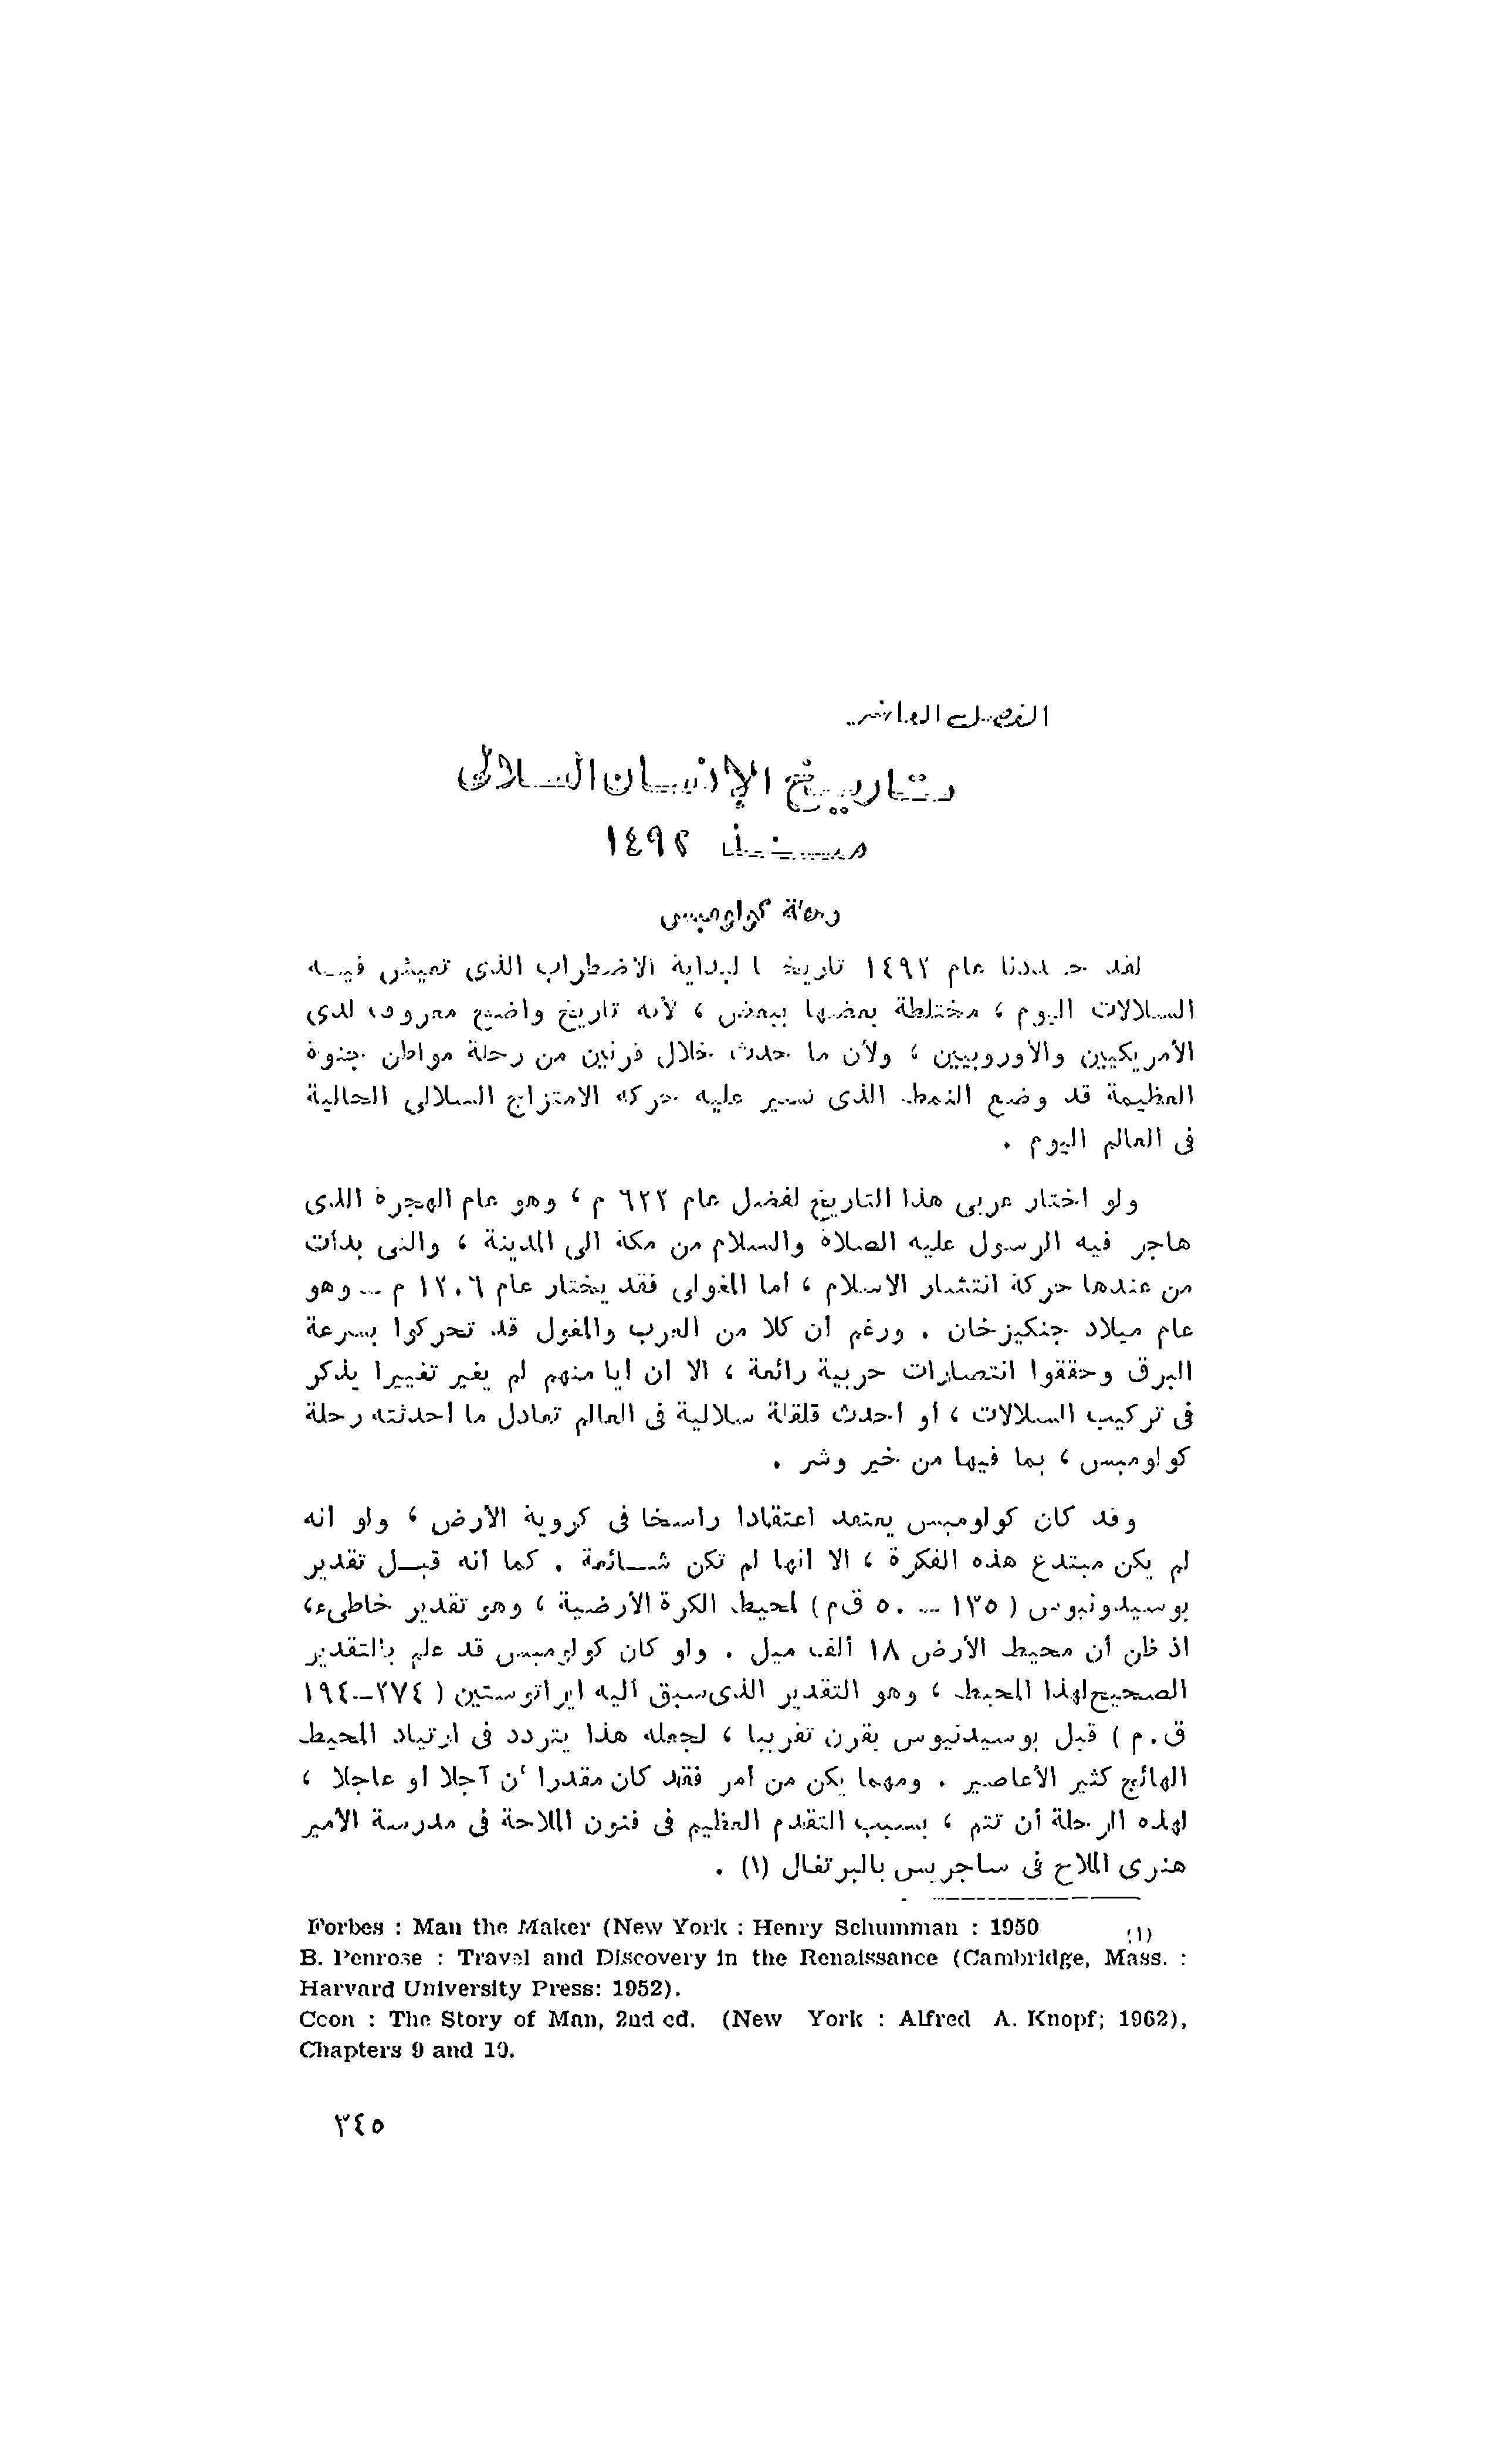 الفصل العاشر
تاريخ الإنسان السلالى
منذ ١٤٩٢
رحلة كولومبس
لقد حددنا عام ١٤٩٢ تاريخا لبداية الاضطراب الذى تعيش فيه
السلالات اليوم ، مختلطة بعضها ببعض ، لأنه تاريخ واضح معروف لدى
الأمريكيين والأوروبيين ، ولأن ما حدث خلال قرنين من رحلة مواطن جنوة
العظيمة قد وضع النمط الذى تسير عليه حركة الامتزاج السلالى الحالية
فى العالم اليوم .
ولو اختار عربى هذا التاريخ لفضل عام ٦٢٢ م ، وهو عام الهجرة الذى
هاجر فيه الرسول عليه الصلاة والسلام من مكة الى المدينة ، والتى بدأت
من عندها حركة انتشار الاسلام ، أما المغولى فقد يختار عام ١٢٠٦ م — وهو
عام ميلاد جنكيزخان . ورغم أن كلا من العرب والمغول قد تحركوا بسرعة
البرق وحققوا انتصارات حربية رائعة ، الا ان أيا منهم لم يغير تغييرا يذكر
فى تركيب السلالات ، أو أحدث قلقلة سلالية فى العالم تعادل ما أحدثته رحلة
كولومبس ، بما فيها من خير وشر .
وقد كان كولومبس يعتقد اعتقادا راسخا فى كروية الأرض ، ولو انه
لم يكن مبتدع هذه الفكرة ، الا انها لم تكن شائعة . كما أنه قبل تقدير
بوسيدونيوس ( ١٣٥ — ٥٠ ق٠م ) لمحيط الكرة الأرضية ، وهو تقدير خاطىء،
اذ ظن أن محيط الأرض ١٨ ألف ميل . ولو كان كولومبس قد علم بالتقدير
الصحيح لهذا المحيط ، وهو التقدير الذى سبق اليه ايراتوستين ( ٢٧٤—١٩٤
ق٠م ) قبل بوسيدنيوس بقرن تقريبا ، لجعله هذا يتردد فى ارتياد المحيط
الهائج كثير الأعاصير . ومهما يكن من أمر فقد كان مقدرا أن آجلا أو عاجلا ،
لهذه الرحلة أن تتم ، بسبب التقدم العظيم فى فنون الملاحة فى مدرسة الأمير
هنرى الملاح فى ساجريس بالبرتغال (١) .
(١) Forbes : Man the Maker (New York : Henry Schumman : 1950
B. Penrose : Travel and Discovery in the Renaissance (Cambridge, Mass. :
Harvard University Press: 1952).
Ccon : The Story of Man, 2nd ed. (New York : Alfred A. Knopf; 1962),
Chapters 9 and 10.
٣٤٥